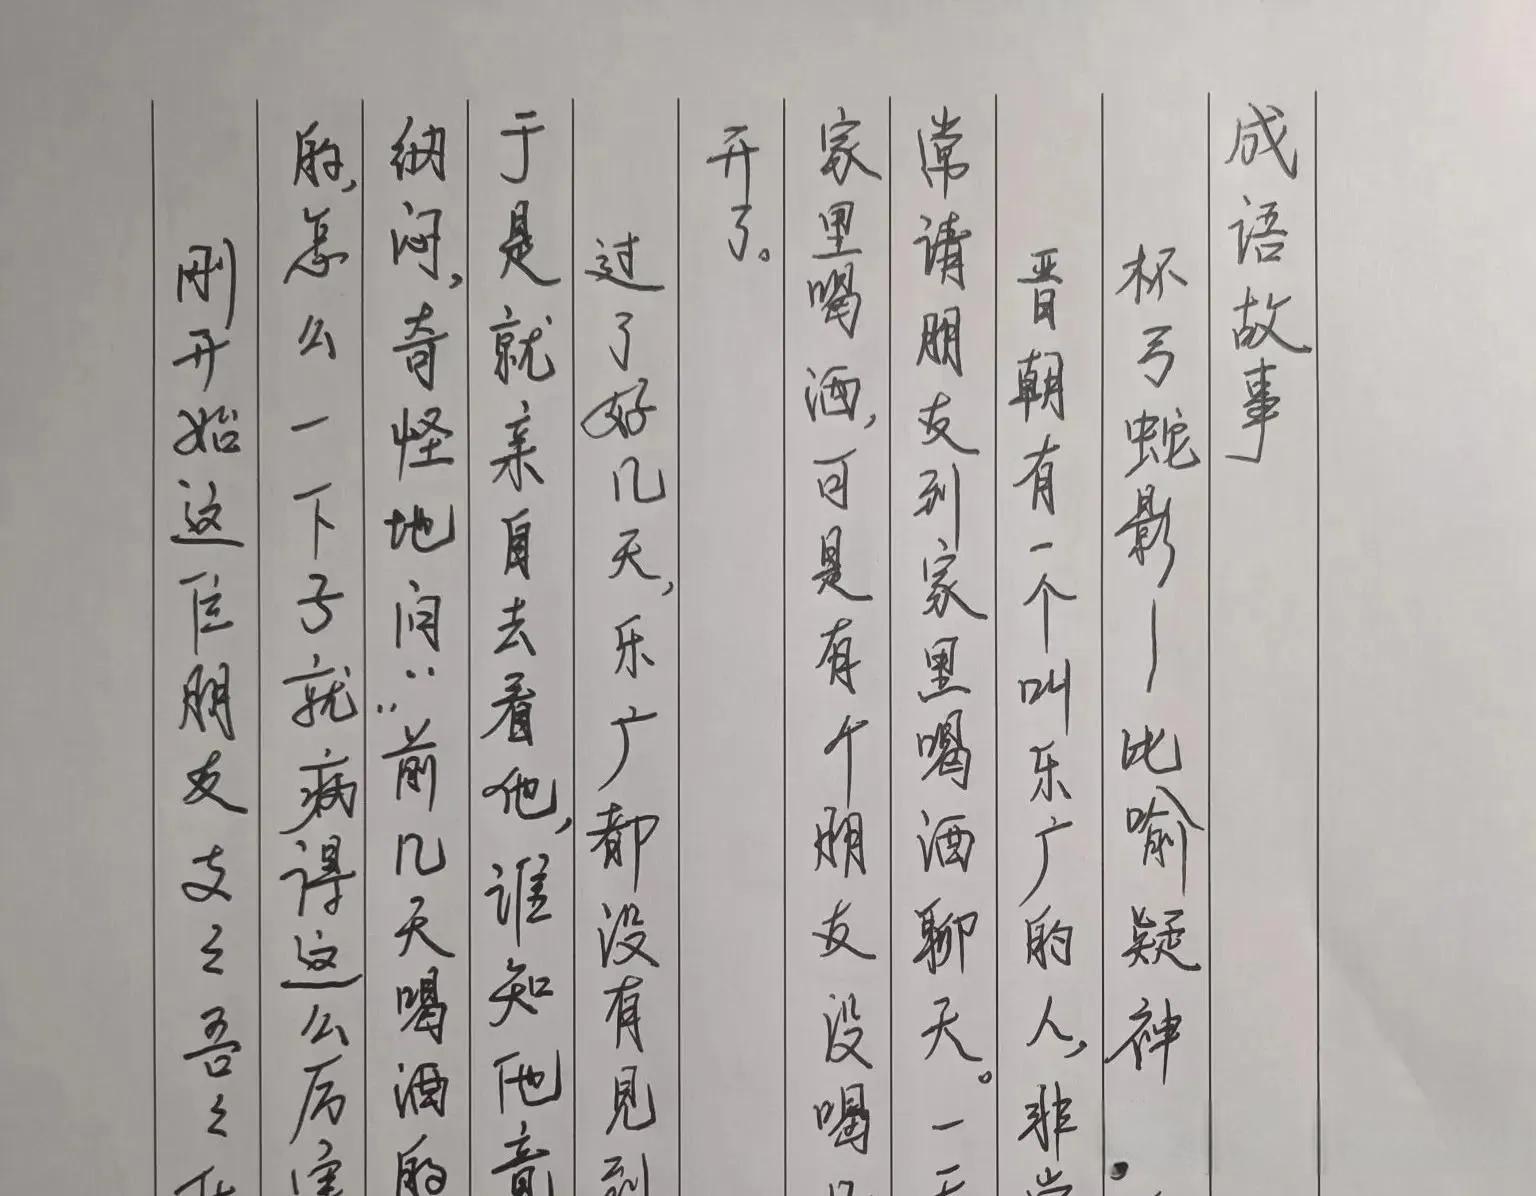 成语故事
杯弓蛇影—比喻疑神
晋朝有一个叫乐广的人,非常
常请朋友到家里喝酒聊天。一天
家里喝酒,可是有个朋友没喝几
开了。
过了好几天,乐广都没有见到
于是就亲自去看他,谁知他竟
纳闷,奇怪地问:“前几天喝酒的
的,怎么一下子就病得这么厉害
刚开始这位朋友支支吾吾